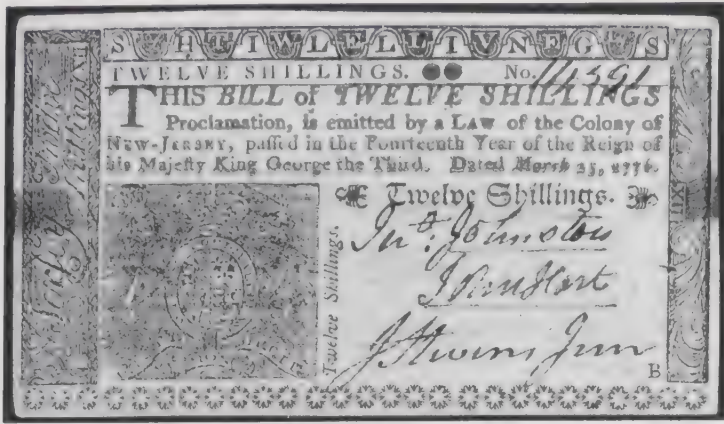 TWELVE SHILLINGS. No. 14591
THIS BILL of TWELVE SHILLINGS
Proclamation, is emitted by a LAW of the Colony of
NEW-JERSEY, paſſed in the Fourteenth Year of the Reign of
his Majeſty King George the Third. Dated March 25, 1776.
Twelve Shillings.
Twelve Shillings.
Jno. Johnston
John Hart
J Stevens Jun
B
Twelve
Shillings XII
XII